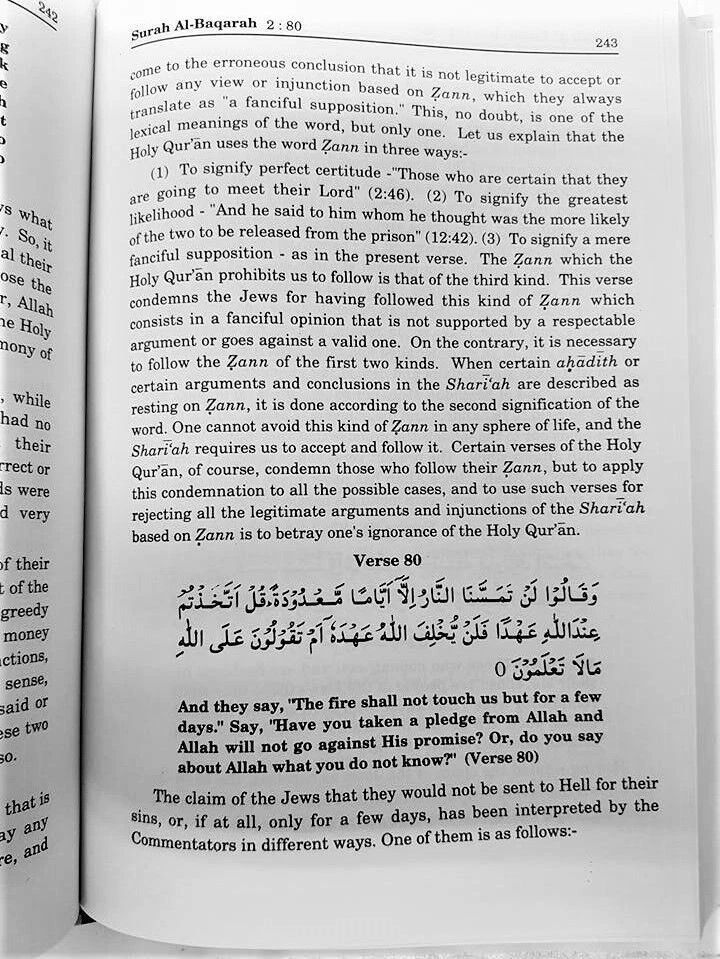 242
y
g
k
e
h
t
o
o
ys what
y. So, it
al their
ose the
r, Allah
he Holy
mony of
, while
had no
their
rrect or
ls were
d very
of their
t of the
greedy
money
ctions,
sense,
said or
ese two
so.
that is
ay any
re, and
Surah Al-Baqarah 2 : 80
243
come to the erroneous conclusion that it is not legitimate to accept or
follow any view or injunction based on Ẓann, which they always
translate as "a fanciful supposition." This, no doubt, is one of the
lexical meanings of the word, but only one. Let us explain that the
Holy Qur'ān uses the word Ẓann in three ways:-
(1) To signify perfect certitude -"Those who are certain that they
are going to meet their Lord" (2:46). (2) To signify the greatest
likelihood - "And he said to him whom he thought was the more likely
of the two to be released from the prison" (12:42). (3) To signify a mere
fanciful supposition - as in the present verse. The Ẓann which the
Holy Qur'ān prohibits us to follow is that of the third kind. This verse
condemns the Jews for having followed this kind of Ẓann which
consists in a fanciful opinion that is not supported by a respectable
argument or goes against a valid one. On the contrary, it is necessary
to follow the Ẓann of the first two kinds. When certain aḥādīth or
certain arguments and conclusions in the Sharī‘ah are described as
resting on Ẓann, it is done according to the second signification of the
word. One cannot avoid this kind of Ẓann in any sphere of life, and the
Sharī‘ah requires us to accept and follow it. Certain verses of the Holy
Qur'ān, of course, condemn those who follow their Ẓann, but to apply
this condemnation to all the possible cases, and to use such verses for
rejecting all the legitimate arguments and injunctions of the Sharī‘ah
based on Ẓann is to betray one's ignorance of the Holy Qur'ān.
Verse 80
وَقَالُوْا لَنْ تَمَسَّنَا النَّارُ اِلَّآ اَيَّامًا مَّعْدُوْدَةً ؕ قُلْ اَتَّخَذْتُمْ
عِنْدَ اللّٰهِ عَهْدًا فَلَنْ يُّخْلِفَ اللّٰهُ عَهْدَهٗٓ اَمْ تَقُوْلُوْنَ عَلَى اللّٰهِ
مَا لَا تَعْلَمُوْنَ 0
And they say, "The fire shall not touch us but for a few
days." Say, "Have you taken a pledge from Allah and
Allah will not go against His promise? Or, do you say
about Allah what you do not know?" (Verse 80)
The claim of the Jews that they would not be sent to Hell for their
sins, or, if at all, only for a few days, has been interpreted by the
Commentators in different ways. One of them is as follows:-